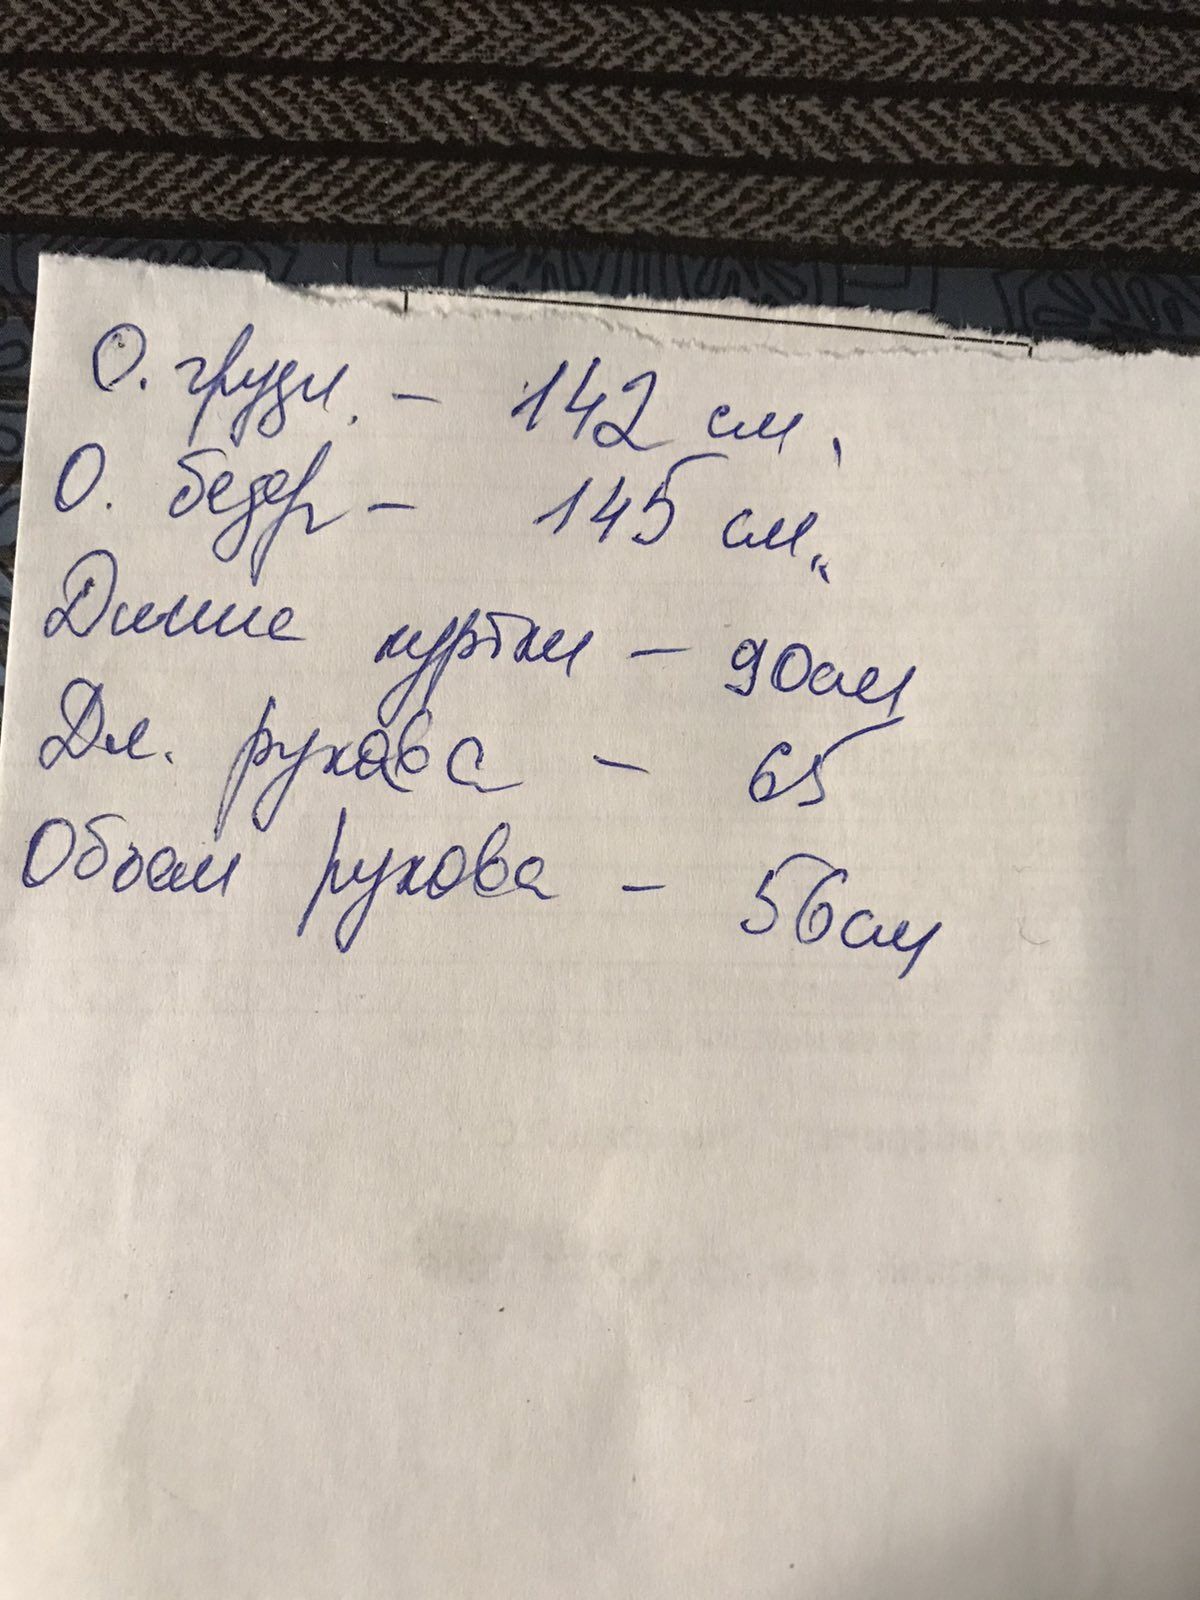 О. груди. - 142 см.
О. бедер - 145 см.
Длина куртки - 90см
Дл. рукава - 65
Объем рукова - 56см